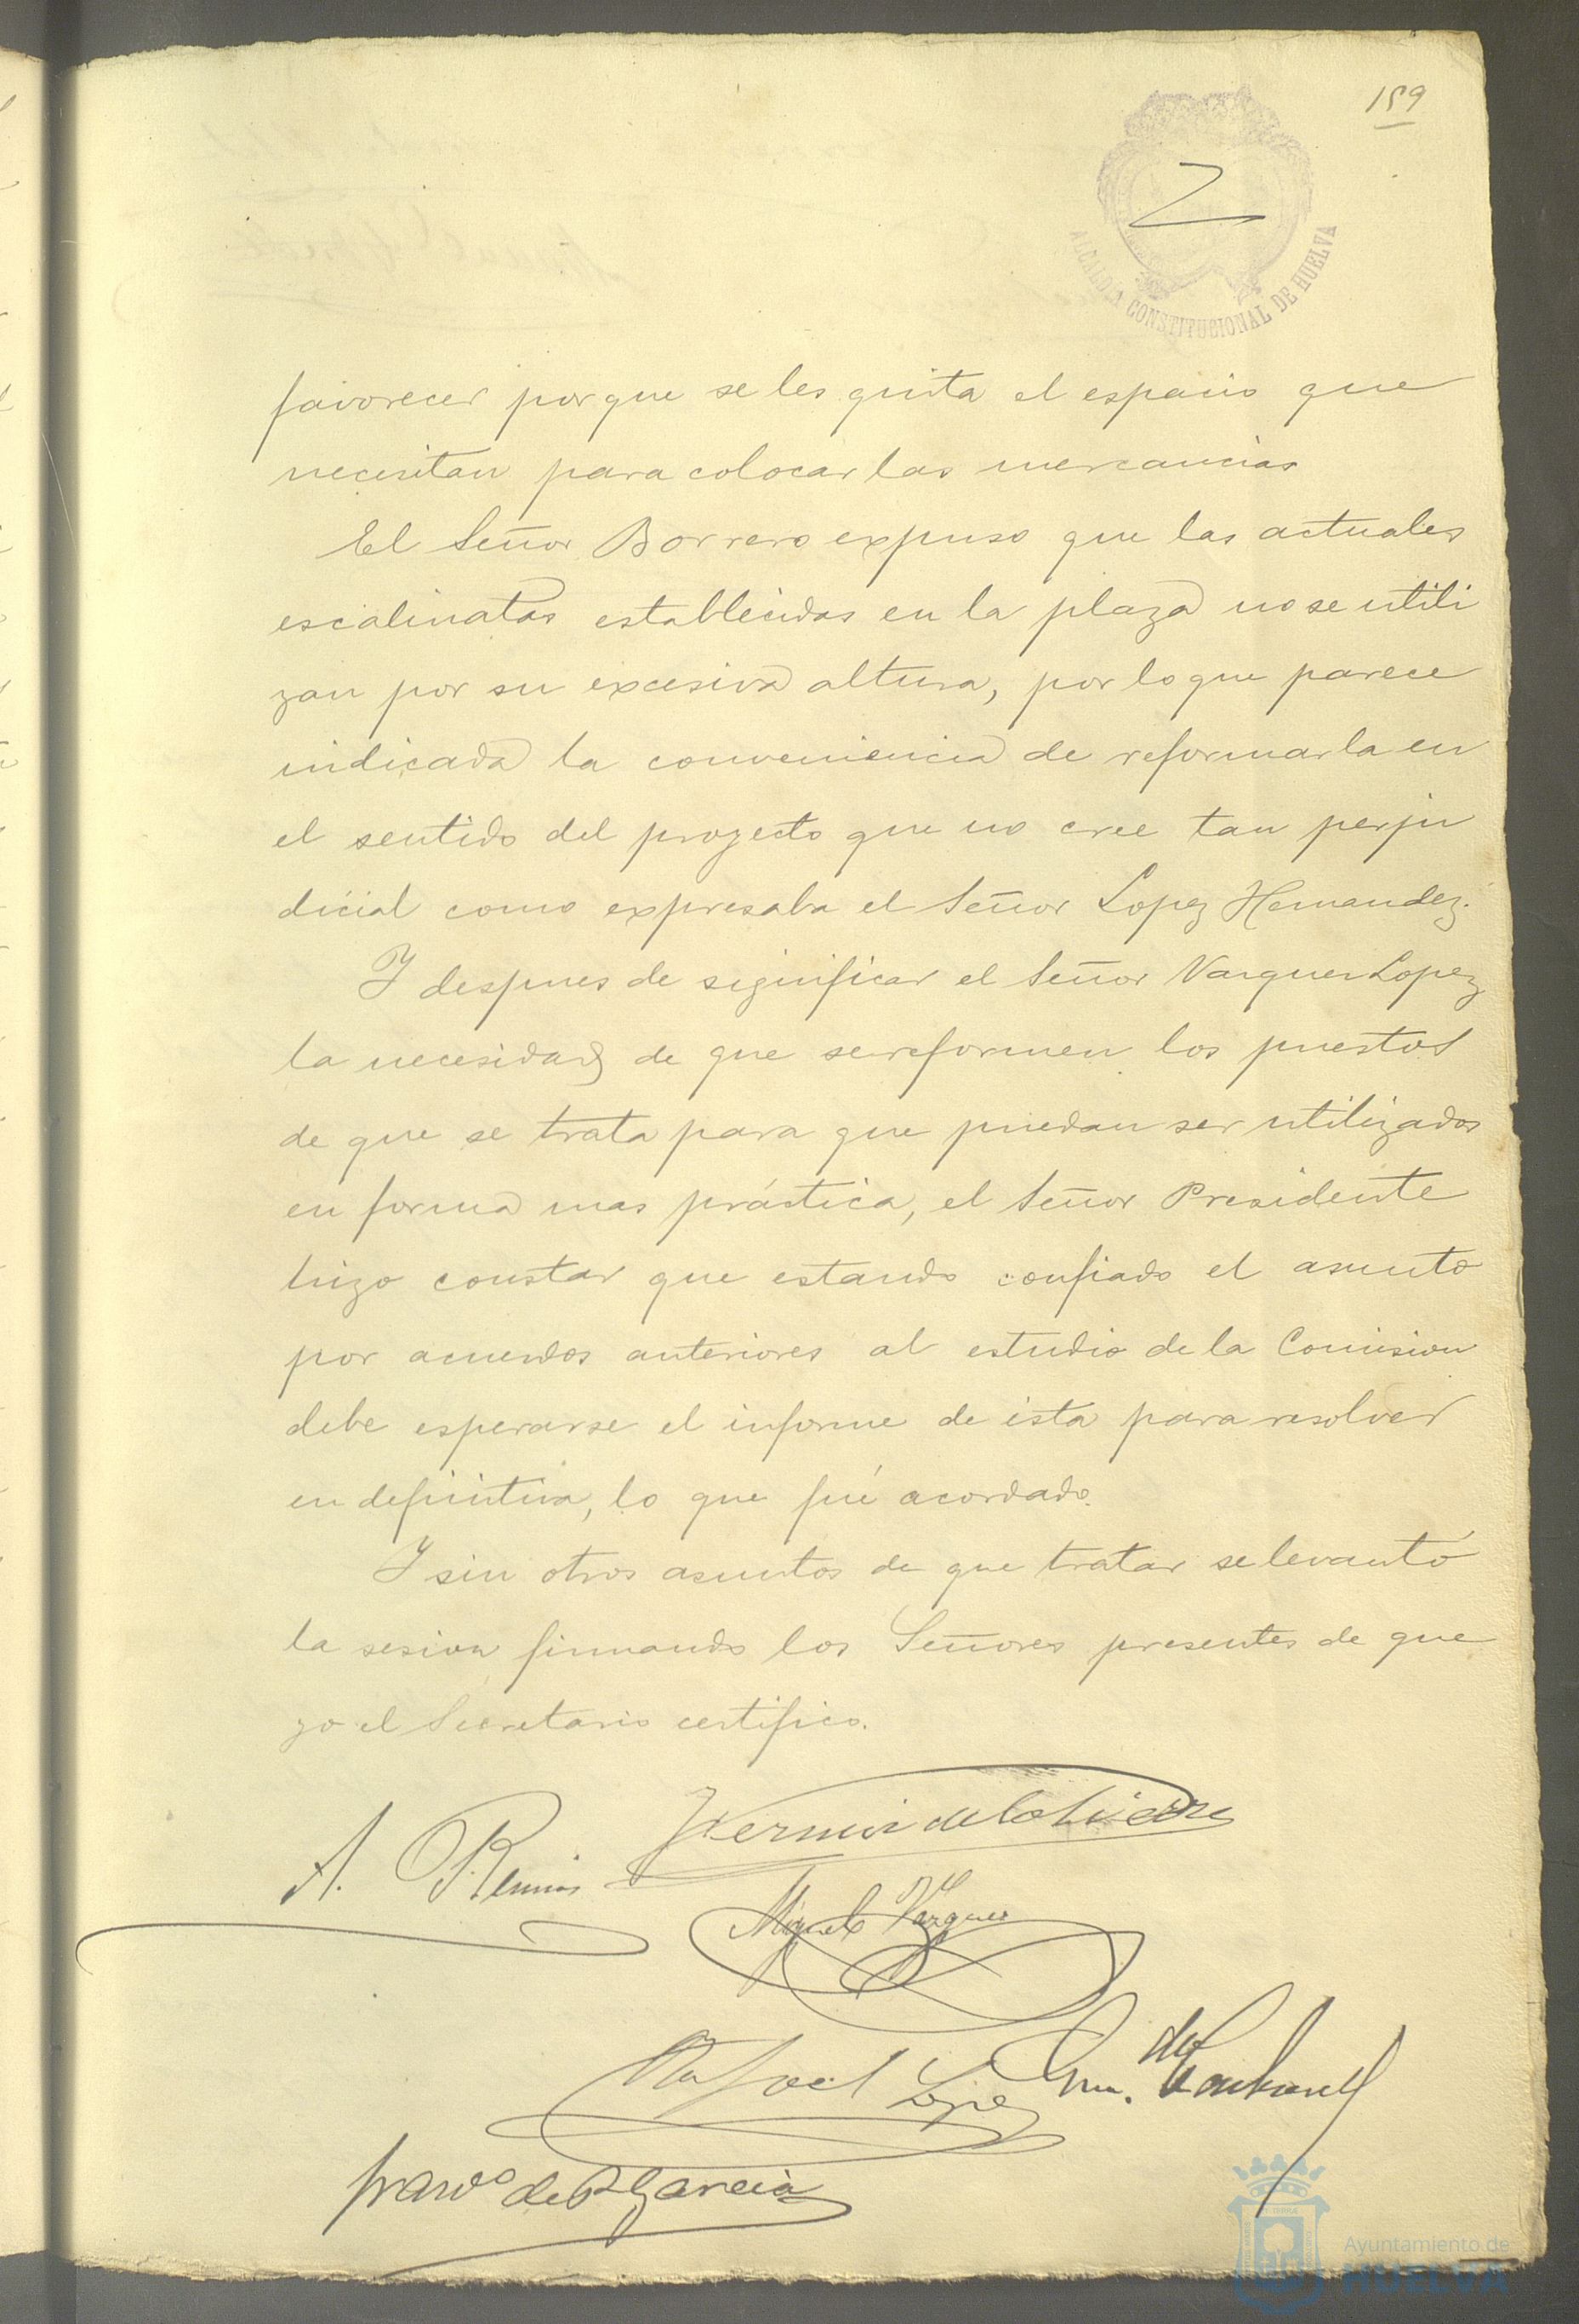 159
ALCALDIA CONSTITUCIONAL DE HUELVA
favorecer porque se les quita el espacio que
necesitan para colocar las mercancias
El Señor Borrero expuso que las actuales
escalinatas establecidas en la plaza no se utili
zan por su excesiva altura, por lo que parece
indicada la conveniencia de reformarla en
el sentido del proyecto que no cree tan perju
dicial como expresaba el Señor Lopez Hernandez.
Y despues de significar el Señor Vazquez Lopez
la necesidad de que se reformen los puestos
de que se trata para que puedan ser utilizados
en forma mas práctica, el Señor Presidente
hizo constar que estando confiado el asunto
por acuerdos anteriores al estudio de la Comision
debe esperarse el informe de ista para resolver
en definitiva, lo que fué acordado.
Y sin otros asuntos de que tratar se levantó
la sesion firmando los Señores presentes de que
yo el Secretario certifico.
A.
Miguel Vazquez
Rafael Lopez
de Garcia
Ayuntamiento de
HUELVA